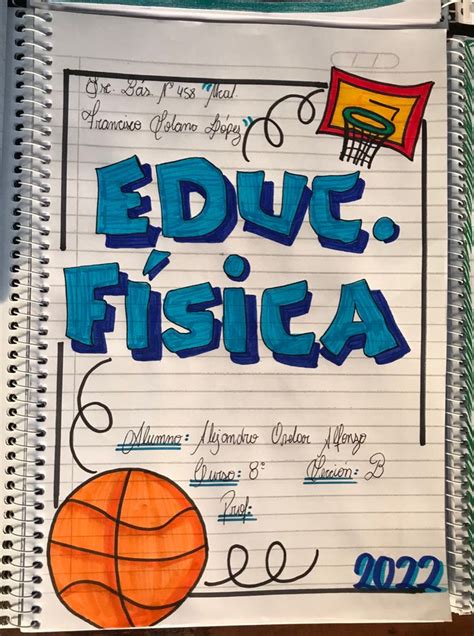 Esc. Bás. N° 458 "Mcal.
Francisco Solano López"
EDUC.
FÍSICA
Alumno: Alejandro Ovelar Alfonzo
Curso: 8° Sección: B
Prof:
2022